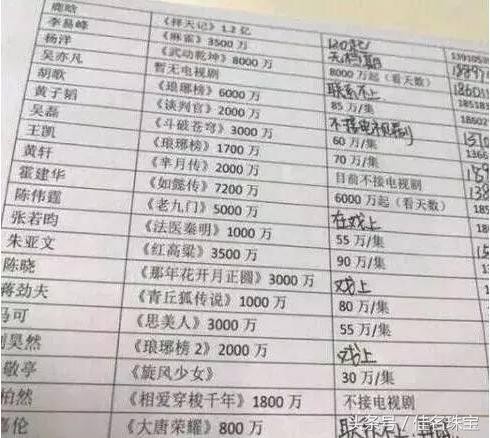 鹿晗 《择天记》1.2 亿 120起
李易峰 《麻雀》3500 万 无档期
杨洋 《武动乾坤》8000 万 8000 万起（看天数）
吴亦凡 暂无电视剧 联系不上
胡歌 《琅琊榜》6000 万 85 万/集
黄子韬 《谈判官》2000 万 不接电视剧
吴磊 《斗破苍穹》3000 万 60 万/集
王凯 《琅琊榜》1700 万 70 万/集
黄轩 《芈月传》2000 万 目前不接电视剧
霍建华 《如懿传》7200 万 6000 万起（看天数）
陈伟霆 《老九门》5000 万 在戏上
张若昀 《法医秦明》1000 万 55 万/集
朱亚文 《红高粱》3500 万 90 万/集
陈晓 《那年花开月正圆》3000 万 戏上
蒋劲夫 《青丘狐传说》1000 万 80 万/集
马可 《思美人》3000 万 55 万/集
刘昊然 《琅琊榜 2》2000 万 戏上
敬亭 《旋风少女》 30 万/集
柏然 《相爱穿梭千年》1800 万 不接电视剧
嘉伦 《大唐荣耀》800 万
头条号 / 佳名珠宝